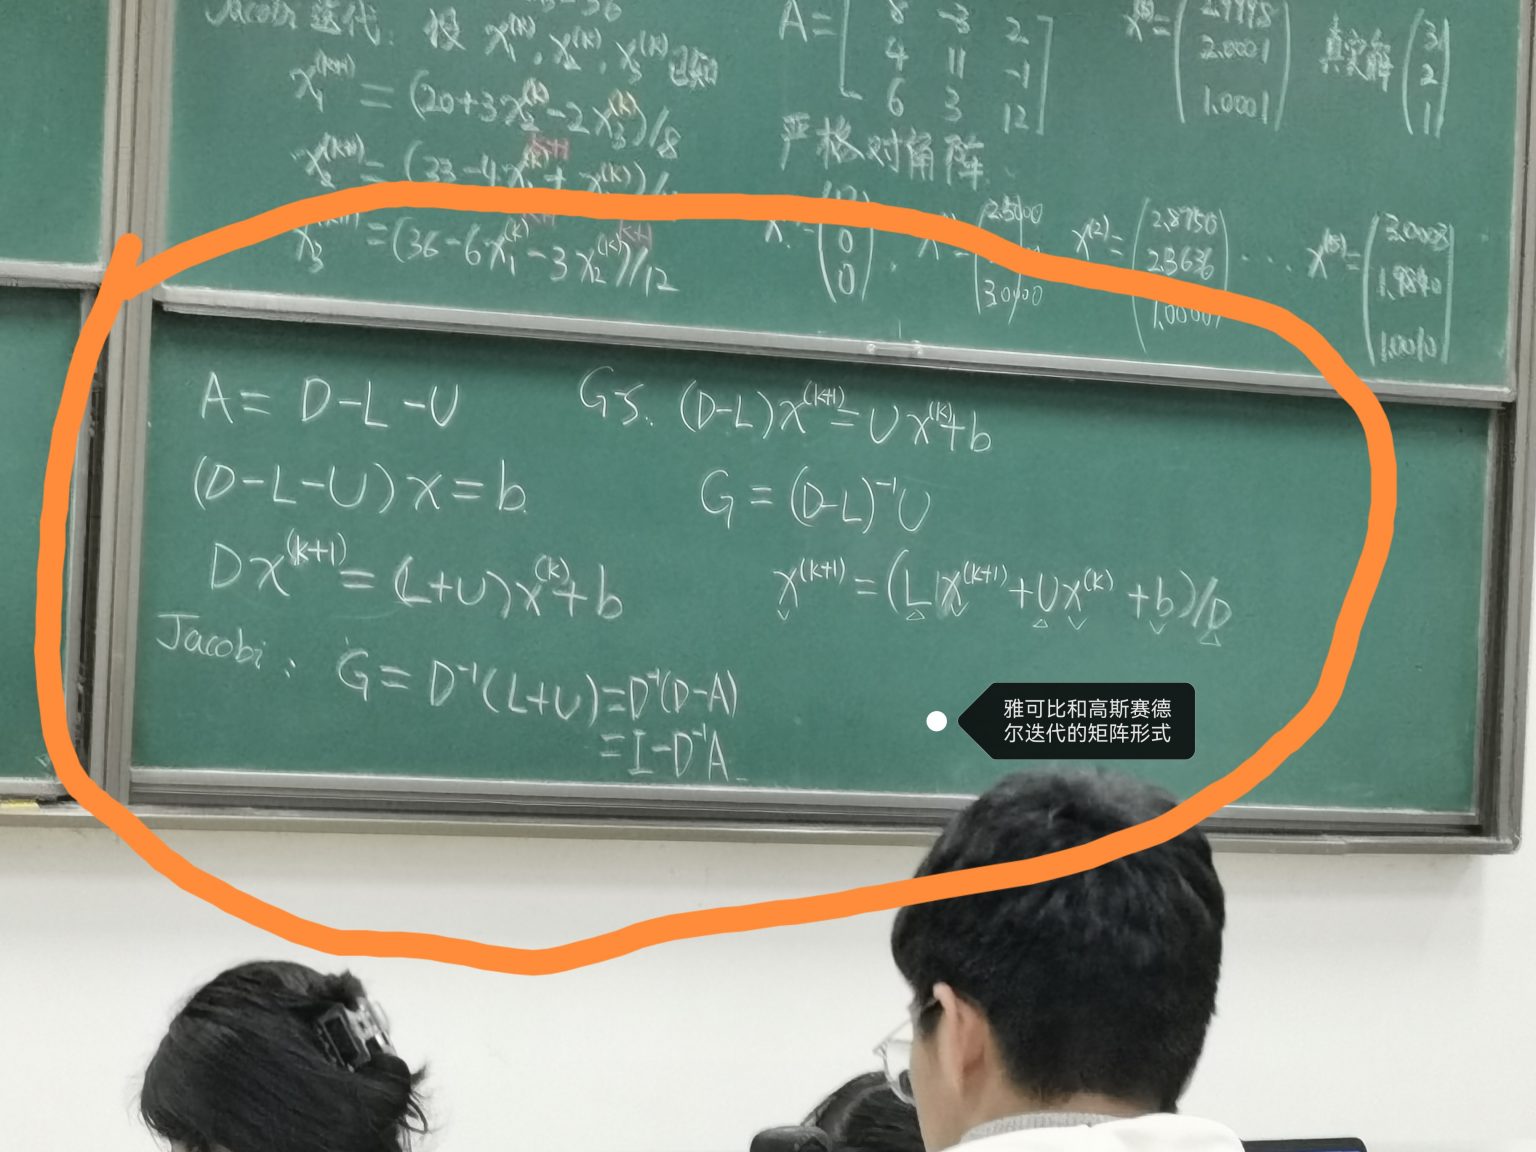 Jacobi 迭代: 设 x₁^(k), x₂^(k), x₃^(k) 已知
x₁^(k+1) = (20+3x₂^(k)-2x₃^(k))/8
x₂^(k+1) = (33-4x₁^(k)+x₃^(k))/
x₃ =(36-6x₁^(k)-3x₂^(k))/12
A= [
8 -3 2
4 11 -1
6 3 12 ]
严格对角阵
2.0001
1.0001
真实解 (3 2 1)
0
0
2.5000
3.0000
x^(2)= (2.8750
2.3636
1.0000)
...
1.0010
A= D-L-U
(D-L-U)x=b
Dx^(k+1)=(L+U)x^(k)+b
Jacobi: G= D⁻¹(L+U)=D⁻¹(D-A)
=I-D⁻¹A
G-S. (D-L)x^(k+1)=Ux^(k)+b
G=(D-L)⁻¹U
x^(k+1)=(Lx^(k+1)+Ux^(k)+b)/D
雅可比和高斯赛德
尔迭代的矩阵形式